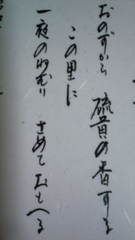 おのづから 硫黄の香する
この里に
一夜のねむり さめておもへる